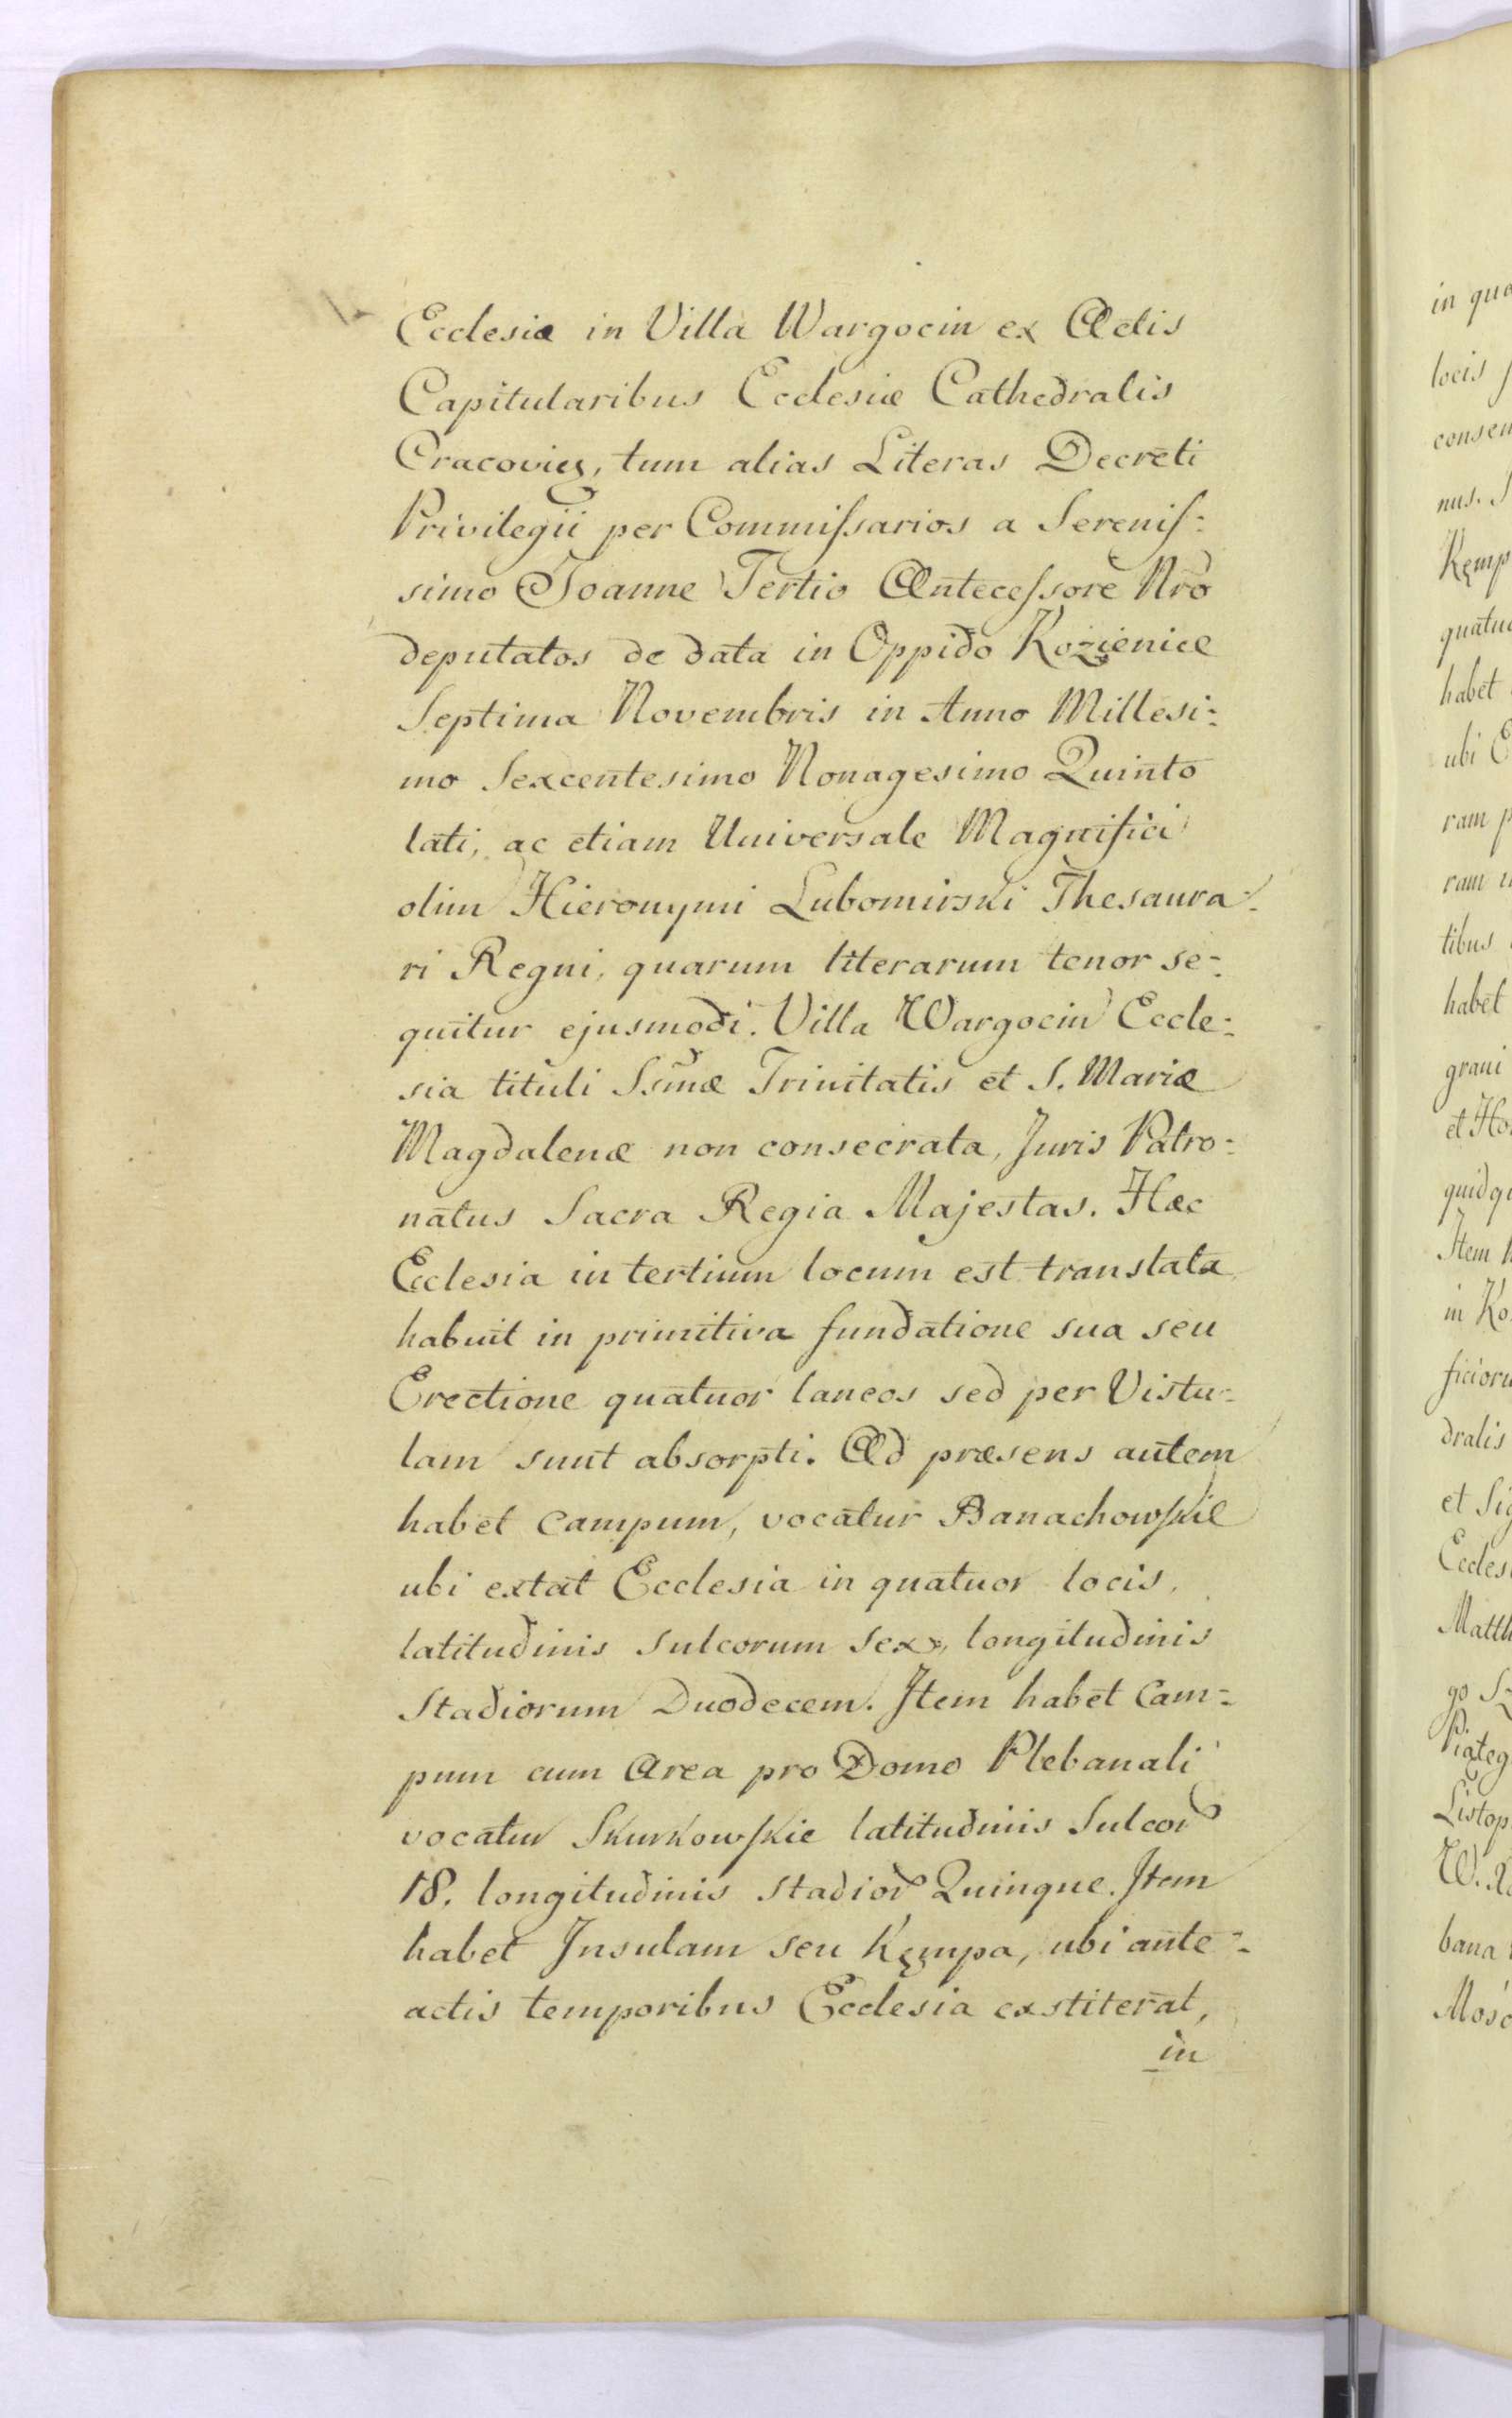 Ecclesiæ in Villa Wargocin ex Actis
Capitularibus Ecclesiæ Cathedralis
Cracovien, tum alias Literas Decreti
Privilegii per Commiſsarios a Sereniſ-
simo Joanne Tertio Anteceſsore Nro
deputatos de data in Oppido Kozienice
Septima Novembris in Anno Millesi-
mo Sexcentesimo Nonagesimo Quinto
lati, ac etiam Universale Magnifici
olim Hieronymi Lubomirski Thesaura-
ri Regni, quarum literarum tenor se-
quitur ejusmodi. Villa Wargocin Eccle-
sia tituli Ssmæ Trinitatis et S. Mariæ
Magdalenæ non consecrata, Juris Patro-
natus Sacra Regia Majestas. Hæc
Ecclesia in tertium locum est translata
habuit in primitiva fundatione sua seu
Erectione quatuor laneos sed per Vistu-
lam sunt absorpti. Ad præsens autem
habet campum, vocatur Banachowſkie
ubi extat Ecclesia in quatuor locis,
latitudinis sulcorum sex, longitudinis
Stadiorum Duodecem. Item habet Cam-
pum cum Area pro Domo Plebanali
vocatur Skurkowſkie latitudinis Sulcor
18. longitudinis stadior Quinque. Item
habet Insulam seu Kęmpa, ubi ante-
actis temporibus Ecclesia exstiterat,
in
in qua
locis
nus.
Kęmp
habet
ubi
ram
ram
tibus
habet
grani
et
Item
in
dralis
et